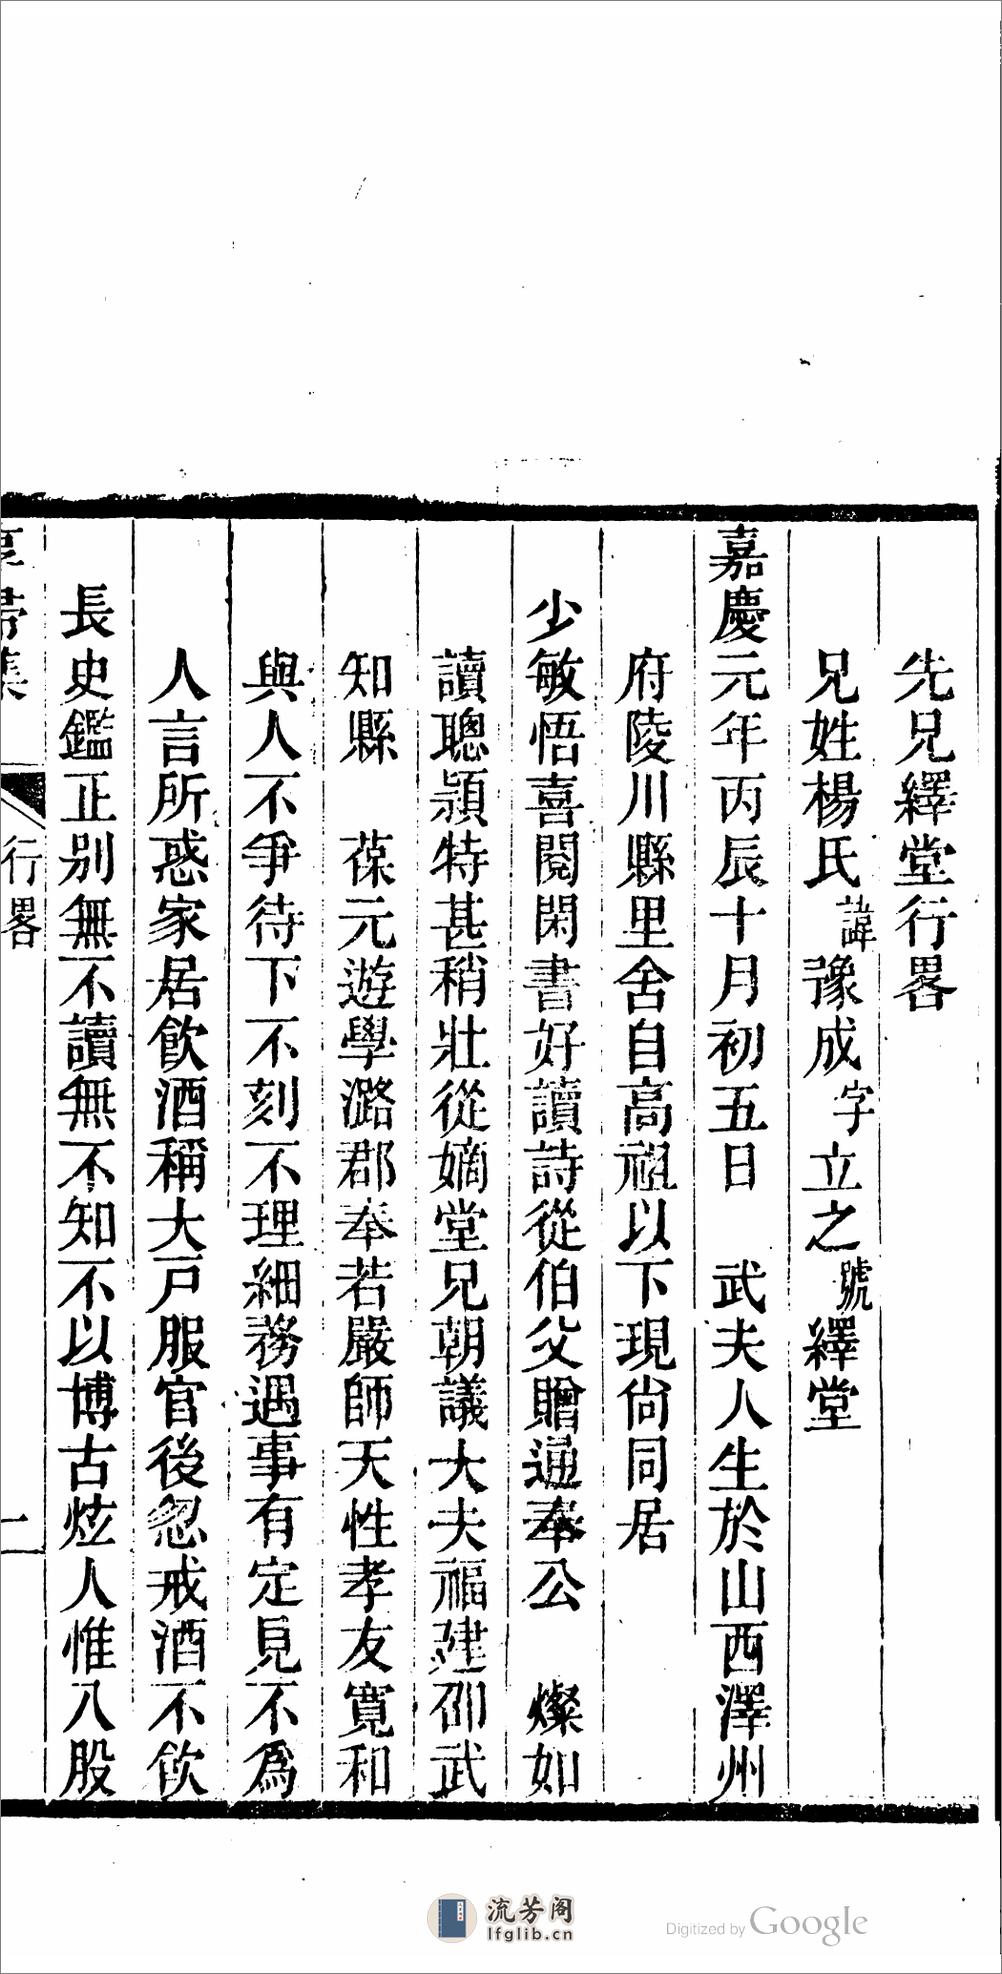 先兄繹堂行畧
兄姓楊氏諱豫成字立之號繹堂
嘉慶元年丙辰十月初五日　武夫人生於山西澤州
府陵川縣里舍自高祖以下現尙同居
少敏悟喜閱閑書好讀詩從伯父贈通奉公　燦如
讀聰潁特甚稍壯從嫡堂兄朝議大夫福建邵武
知縣　葆元遊學潞郡奉若嚴師天性孝友寬和
與人不爭待下不刻不理細務遇事有定見不爲
人言所惑家居飮酒稱大戸服官後忽戒酒不飮
長史鑑正别無不讀無不知不以博古炫人惟八股
行畧
二
流芳阁
lfglib.cn
Digitized by Google